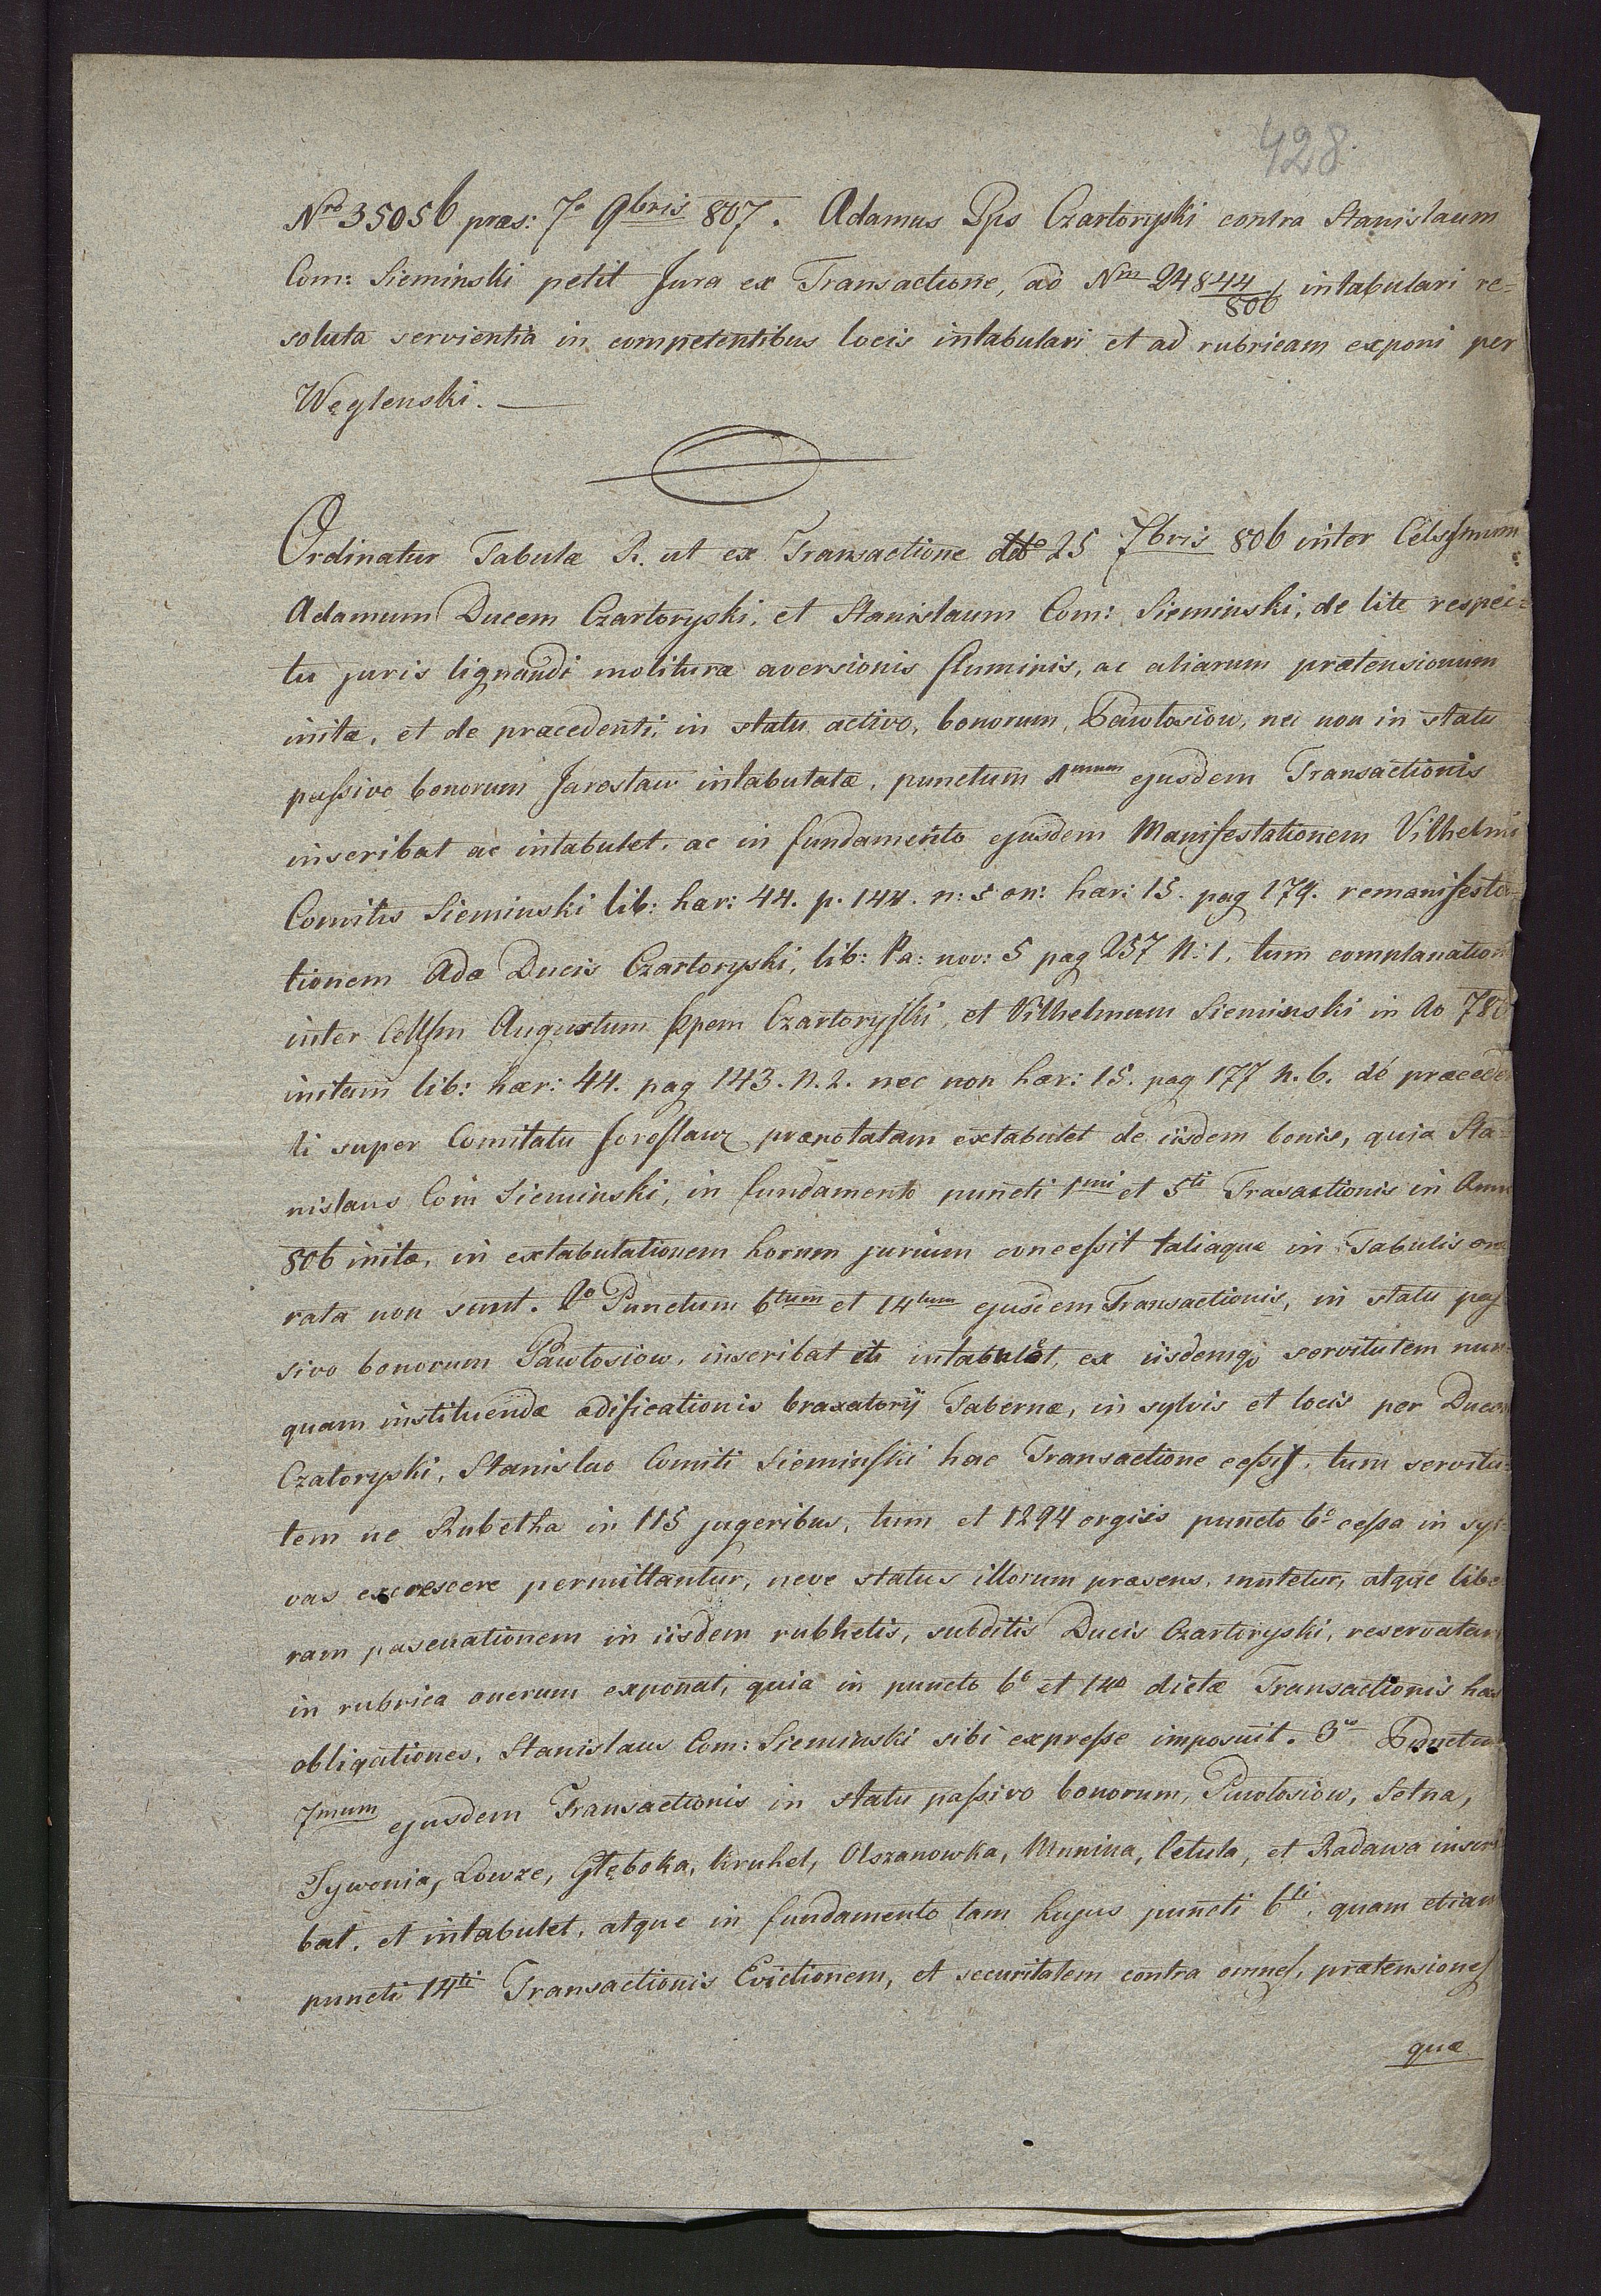 428
Nro 35056 præs: 7a 9bris 807. Adamus Pps Czartoryski contra Stanislaum
Com: Sieminski petit Jura ex Transactione, ad Nrm 24844/806 intabulari re=
soluta servientia in competentibus locis intabulari et ad rubricam exponi per
Węglenski. —
Ordinatur Tabulæ R. ut ex Transactione ddto 25 7bris 806 inter Celsſmum
Adamum Ducem Czartoryski, et Stanislaum Com: Sieminski, de lite respec=
tu juris lignandi molituræ aversionis fluminis, ac aliarum prætensionum
initæ, et de præcedenti, in statu activo, bonorum, Pawłosiow, nec non in statu
paſsivo bonorum Jarosław intabulatæ, punctum 1mum ejusdem Transactionis
inscribat ac intabulet, ac in fundamento ejusdem Manifestationem Vilhelmi
Comitis Sieminski lib: hær: 44. p. 144. n: 5 on: hær: 15. pag 179. remanifesta=
tionem Adæ Ducis Czartoryski, lib: Pa: nov: 5 pag 257 N: 1, tum complanation
inter Cellſm Augustum Ppem Czartoryſki, et Vilhelmum Sieminski in Ao 780
initam lib: hær: 44. pag 143. N. 2. nec non hær: 15. pag 177 n. 6. de præceden
ti super Comitatu Joroſlaw prænotatam extabulet de iisdem bonis, quia Sta=
nislaus Com Sieminski, in fundamento puncti 1mi et 5ti Trasactionis in Anno
806 initæ, in extabulationem horum jurium conceſsit taliaque in Tabulis one
rata non sunt. 2o Punctum 6tum et 14tum ejusdem Transactionis, in statu paſ
sivo bonorum Pawłosiow, inscribat et intabulet, ex iisdemq servitutem nun=
quam instituendæ ædificationis braxatorij Tabernæ, in sylvis et locis per Ducem
Czatoryski, Stanislao Comiti Sieminſki hac Transactione ceſsis, tum servitu=
tem ne Rubetha in 115 jugeribus, tum et 1294 orgiis puncto 6o ceſsa in syl=
vas excrescere permittantur, neve status illorum præsens, mutetur, atque libe
ram pascuationem in iisdem rubhetis, subditis Ducis Czartoryski, reservatam
in rubrica onerum exponat, quia in puncto 6o et 14o dictæ Transactionis has
obligationes, Stanislaus Com: Sieminski sibi expreſse imposuit. 3o Punctum
7mum ejusdem Transactionis in statu paſsivo bonorum, Pawłosiow, Setna,
Tywonia, Lowze, Głęboka, Kruhel, Olszanowka, Munina, Cetula, et Radawa inscri
bat, et intabulet, atque in fundamento tam hujus puncti 6ti, quam etiam
puncti 14ti Transactionis Evictionem, et securitatem contra omneſ, prætensioneſ
quæ